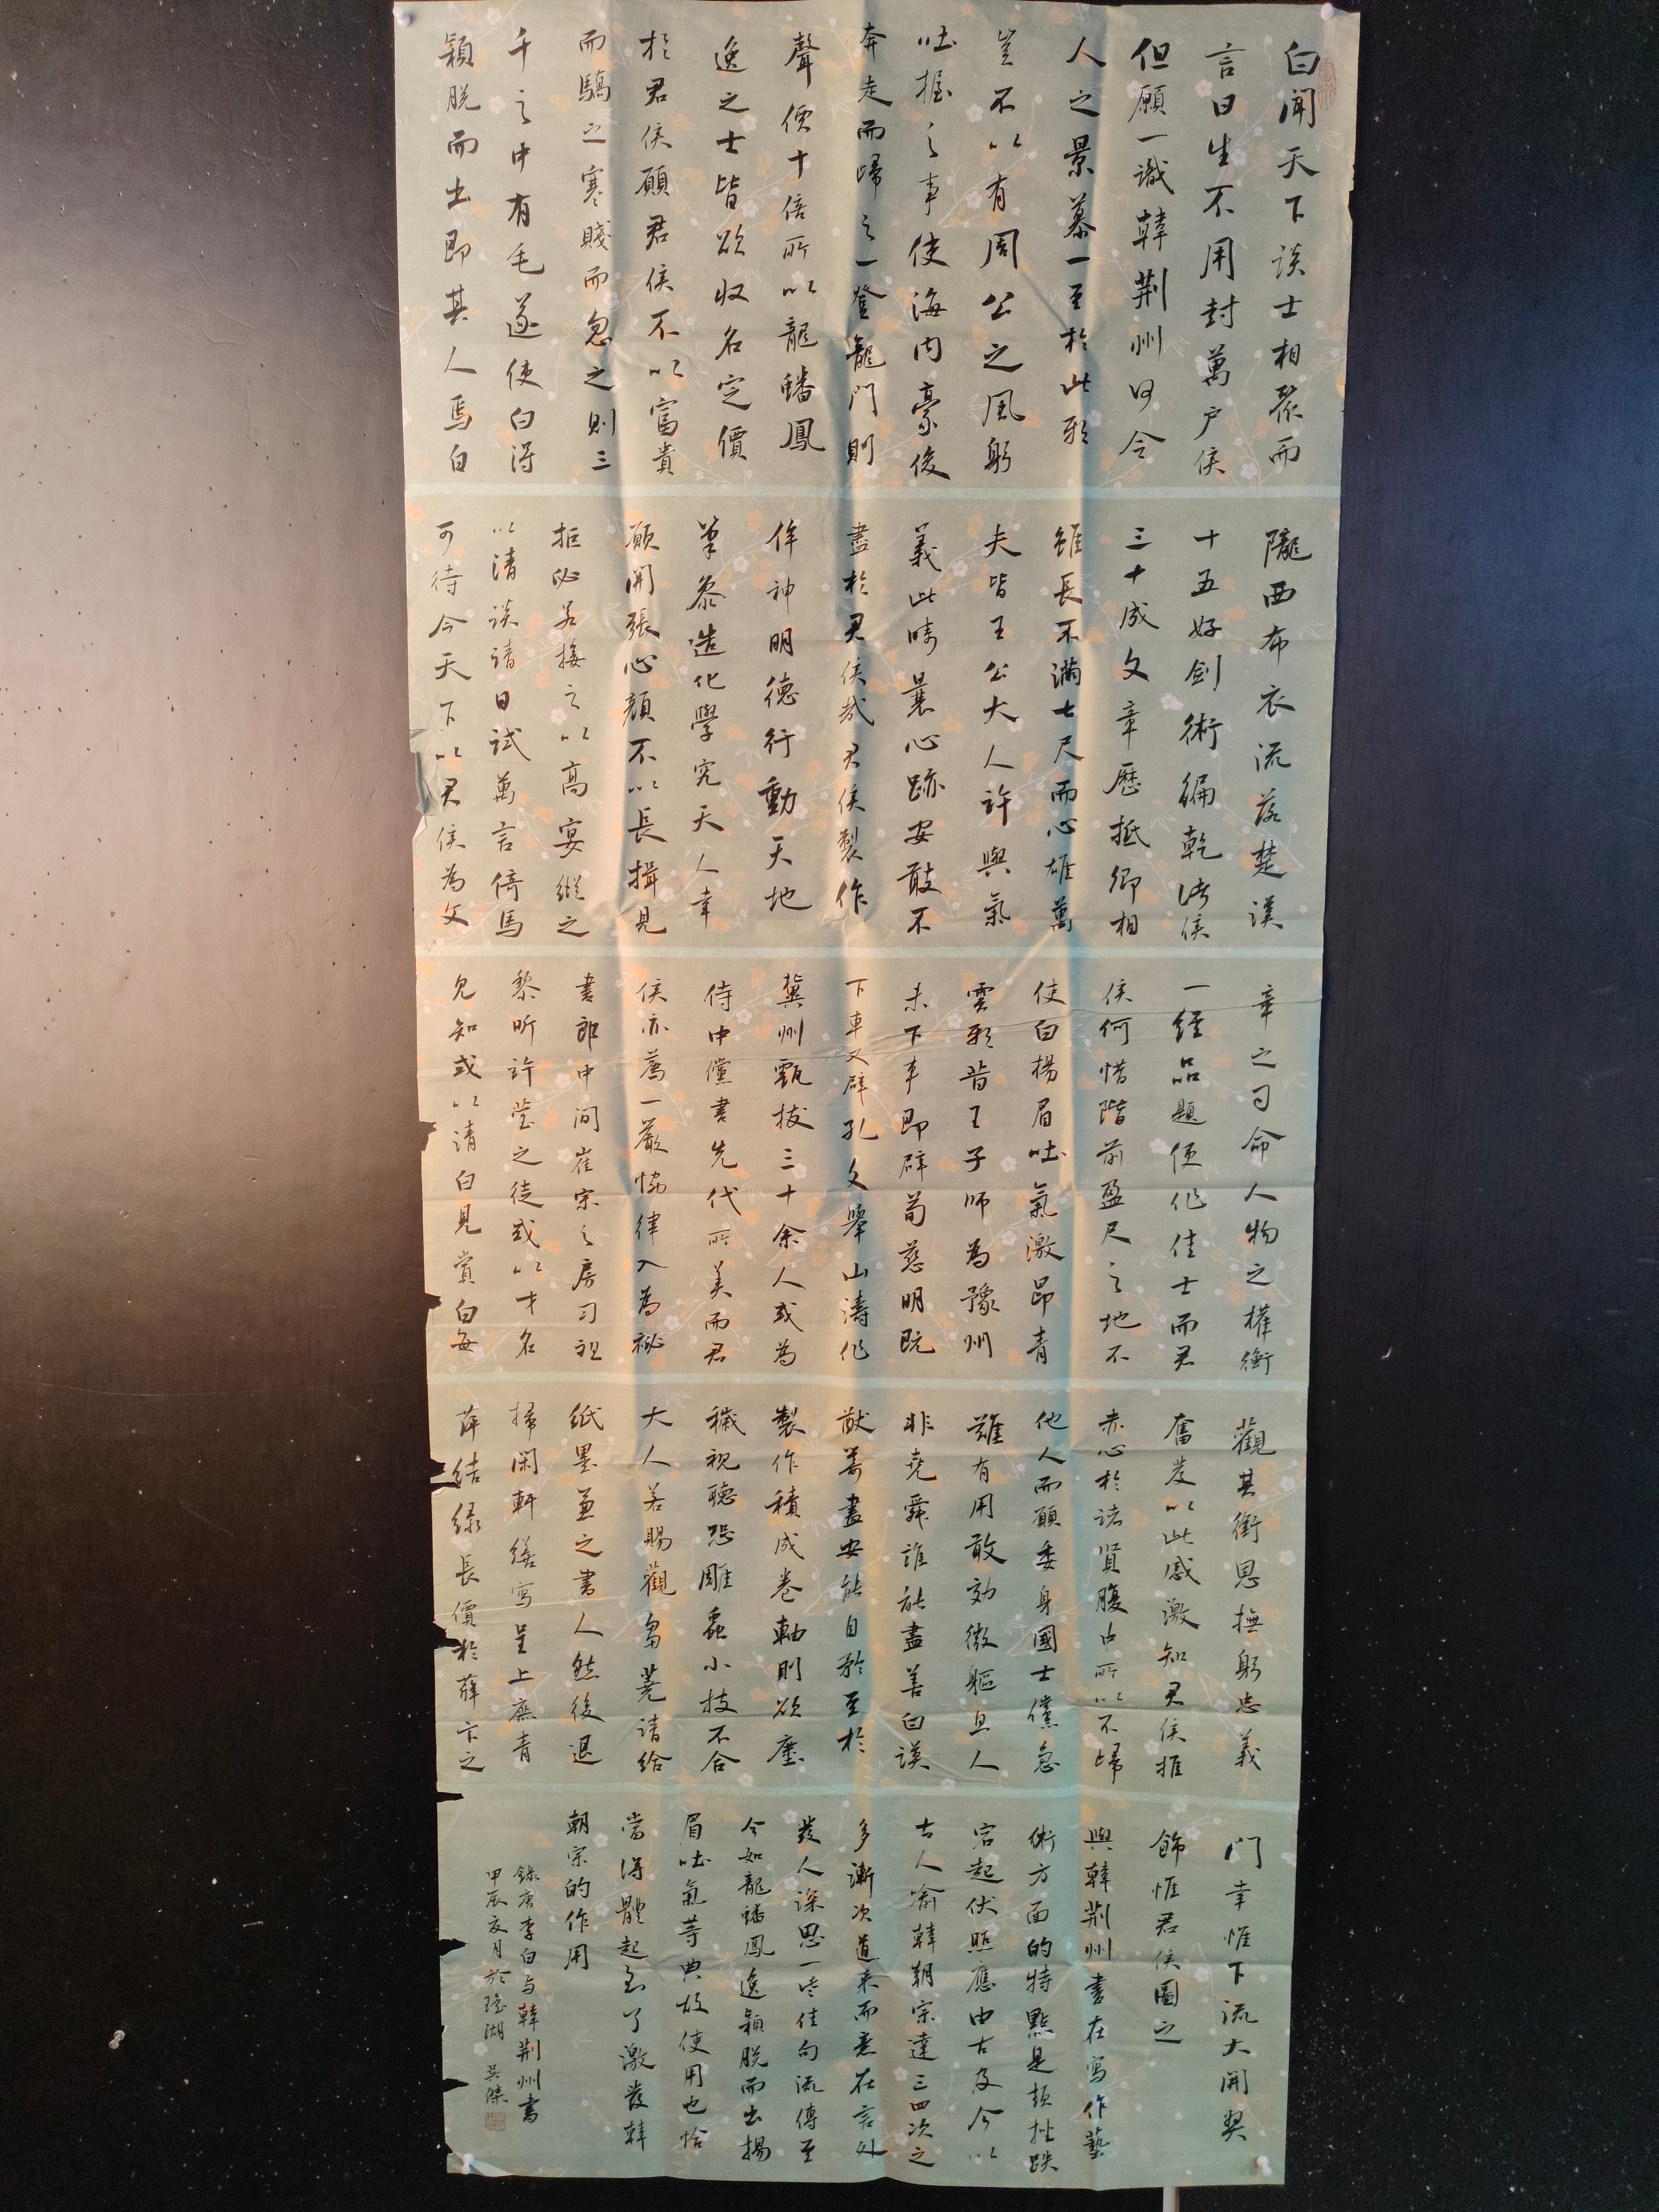 白聞天下談士相聚而
言曰生不用封萬户侯
但願一識韓荆州何令
人之景慕一至於此耶
豈不以有周公之風躬
吐握之事使海内豪俊
奔走而歸之一登龍門則
聲價十倍所以龍蟠鳳
逸之士皆欲收名定價
於君侯願君侯不以富貴
而驕之寒賤而忽之則三
千之中有毛遂使白得
穎脱而出即其人焉白
隴西布衣流落楚漢
十五好劍術徧乾諸侯
三十成文章歷抵卿相
雖長不滿七尺而心雄萬
夫皆王公大人許與氣
義此疇曩心跡安敢不
盡於君侯哉君侯製作
侔神明德行動天地
筆參造化學究天人幸
願開張心顔不以長揖見
拒必若接之以高宴縱之
以清談請日試萬言倚馬
可待今天下以君侯為文
章之司命人物之權衡
一經品題便作佳士而君
侯何惜階前盈尺之地不
使白揚眉吐氣激昂青
雲耶昔王子師為豫州
未下車即辟荀慈明既
下車又辟孔文舉山濤作
冀州甄拔三十余人或為
侍中儻書先代所美而君
侯亦薦一嚴協律入為祕
書郎中间崔宗之房习祖
黎昕許瑩之徒或以才名
見知或以清白見賞白每
觀其銜恩撫躬忠義
奮發以此感激知君侯推
赤心於諸賢腹中所以不歸
他人而願委身國士儻急
難有用敢効微軀且人
非堯舜誰能盡善白謨
猷籌畫安能自矜至於
製作積成卷軸則欲塵
穢視聽恐雕蟲小技不合
大人若賜觀芻蕘請給
紙墨兼之書人然後退
掃閑軒繕寫呈上庶青
萍結緑長價於薛卞之
門幸惟下流大開奬
飾惟君侯圖之
與韓荆州書在寫作藝
術方面的特點是頓挫跌
宕起伏照應由古及今以
古人喻韓朝宗達三四次之
多漸次道来而意在言外
發人深思一些佳句流傳至
今如龍蟠鳳逸穎脱而出揚
眉吐氣等典故使用也恰
當得體起到了激發韓
朝宗的作用
録唐李白与韓荆州書
甲辰夏月於瑶湖 吴傑